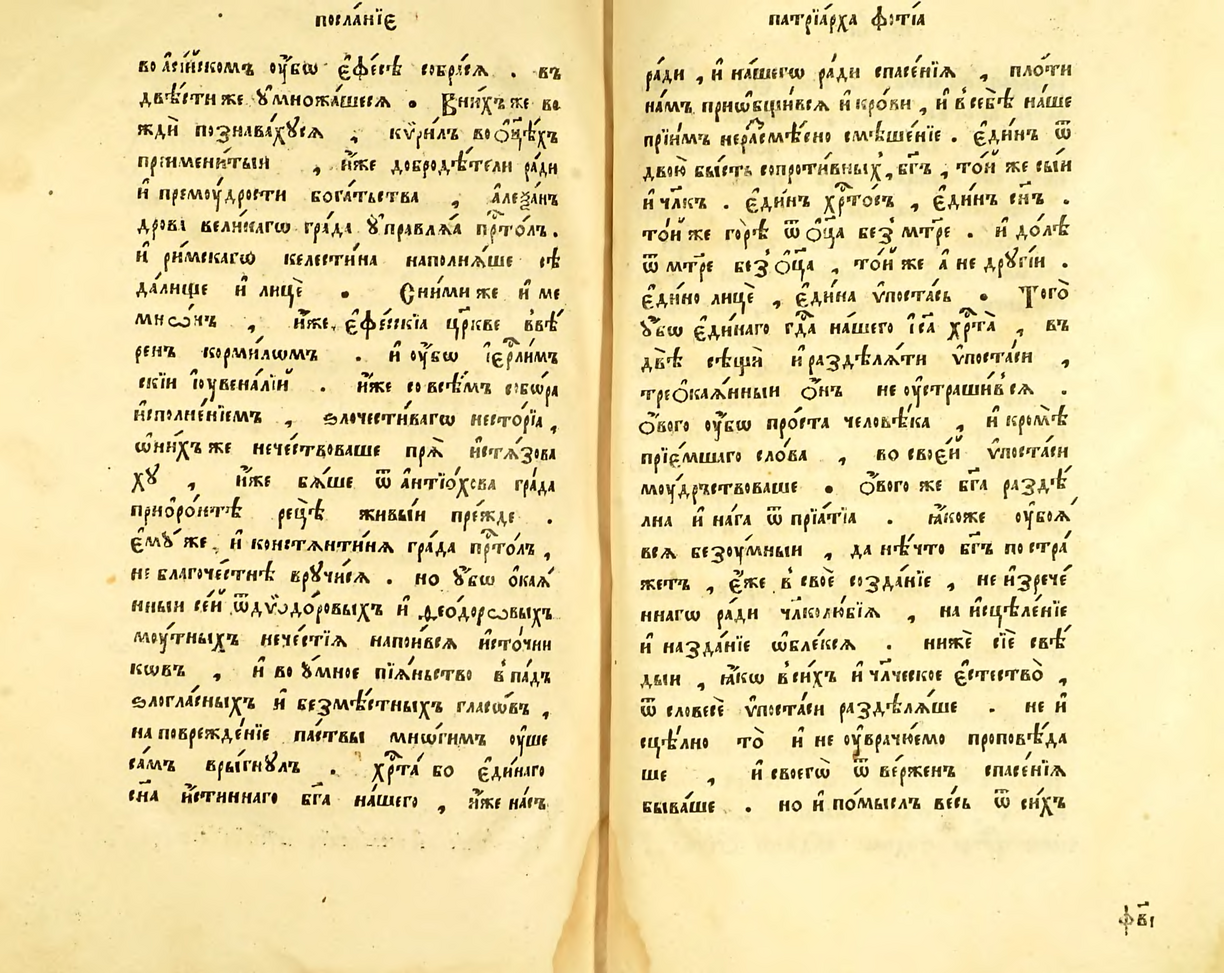 посла́нїє
во а҆сі́йскомъ ᲂу҆́бѡ є҆фе́сѣ собра́сѧ . въ
две́сти же ᲂу҆множа́шесѧ . Вни́хъ же во
ждѝ познава́хꙋсѧ , кѷри́лъ во ѻ҆ц҃ѣ́хъ
приимени́тый , и҆́же доброде́тели ради
и҆ премꙋ́дрости бога́тьства , а҆леѯа́н
дрова вели́кагѡ гра́да ᲂу҆правлѧ́ѧ прⷭ҇то́лъ.
и҆ ри́мскагѡ келести́на наполнѧ́ше сѣ
да́лище и҆ лицѐ . Сни́ми же и҆ ме
мнѡ́нъ , и҆́же є҆фе́сскїѧ цр҃кве ввѣ́
ренъ корми́лѡмъ . и҆ ᲂу҆́бѡ і҆ерⷭ҇ли́м
скїи і҆ꙋвена́лїй . и҆́же со все́мъ собѡ́ра
и҆сполне́нїемъ , ѕлочести́вагѡ несто́рїа ,
ѡ҆ни́хъ же нече́ствоваше прѧ̀ и҆стѧ́зова
хꙋ̀ , и҆́же бѧ́ше ѿ а҆нтїо́хова гра́да
при ѻ҆ро́нтѣ рещѐ живы́й пре́жде .
є҆мꙋ́ же и҆ констѧнти́нѧ гра́да прⷭ҇то́лъ ,
не благоче́стнѣ врꙋчи́сѧ . но ᲂу҆́бѡ ѻ҆каѧ́
нный се́й ѿ дѷѡдо́ровыхъ и҆ ѳео́дорѡвыхъ
мꙋ́тныхъ нече́стїѧ напои́всѧ и҆сто́чни
кѡвъ , и҆ во ᲂу҆́мное пїѧ́ньство впа́дъ
ѕлогла́сныхъ и҆ безмѣ́стныхъ гласѡ́въ ,
на поврежде́нїе па́ствы мнѡ́гимъ ᲂу҆ше
са́мъ вры́гнꙋлъ . хрⷭ҇та́ бо є҆ди́наго
сн҃а и҆́стиннаго бг҃а на́шего , и҆́же на́съ
патрїа́рха фо́тїа
ра́ди , и҆ на́шегѡ ра́ди спасе́нїѧ , пло́ти
на́мъ приѡ҆бщи́всѧ и҆ кро́ви , и҆ в себѣ̀ на́ше
прїи́мъ неразмѣ́сно смѣше́нїе . є҆ди́нъ ѿ
двою̀ бы́сть сопроти́вныхъ, бг҃ъ , то́й же сы́й
и҆ чл҃къ . є҆ди́нъ хрⷭ҇то́съ , є҆ди́нъ сн҃ъ .
то́й же горѣ̀ ѿ ѻ҆ц҃а̀ без мт҃ре . и҆ до́лѣ
ѿ мт҃ре без ѻ҆ц҃а̀ , то́й же а҆ не дрꙋгі́й .
є҆ди́но лицѐ , є҆ди́на ѵ҆поста́сь . Того̀
ᲂу҆́бѡ є҆ди́наго гдⷭ҇а на́шего і҆с҃а хрⷭ҇та̀ , въ
двѣ̀ сѣщѝ и҆ раздѣлѧ́ти ѵ҆поста́си ,
треѻ҆каѧ́нный ѻ҆́нъ не ᲂу҆страши́всѧ .
ѻ҆́вого ᲂу҆́бѡ про́ста человѣ́ка , и҆ кромѣ̀
прїе́мшаго сло́ва , во свое́й ѵ҆поста́си
мꙋ́дрьствоваше . ѻ҆́вого же бг҃а раздѣ́
лна и҆ на́га ѿ прїа́тїа . ꙗ҆́коже ᲂу҆боѧ́
всѧ безꙋ́мный , да нѣ́что бг҃ъ постра́
жетъ , є҆́же в своѐ созда́нїе , неи҆зрече́
ннаго ра́ди чл҃колю́бїѧ , на и҆сцѣле́нїе
и҆ назда́нїе ѡ҆бле́ксѧ . нижѐ сїѐ свѣ́
дый , ꙗ҆́кѡ в си́хъ и҆ чл҃ческое є҆стество̀ ,
ѿ словесѐ ѵ҆поста́си раздѣлѧ́ше . не и҆
сцѣ́лно то̀ и҆ не ᲂу҆врачю́емо проповѣ́да
ше , и҆ своегѡ̀ ѿве́рженъ спасе́нїѧ
быва́ше . но и҆ по́мыслъ ве́сь ѿ си́хъ
фв҃і